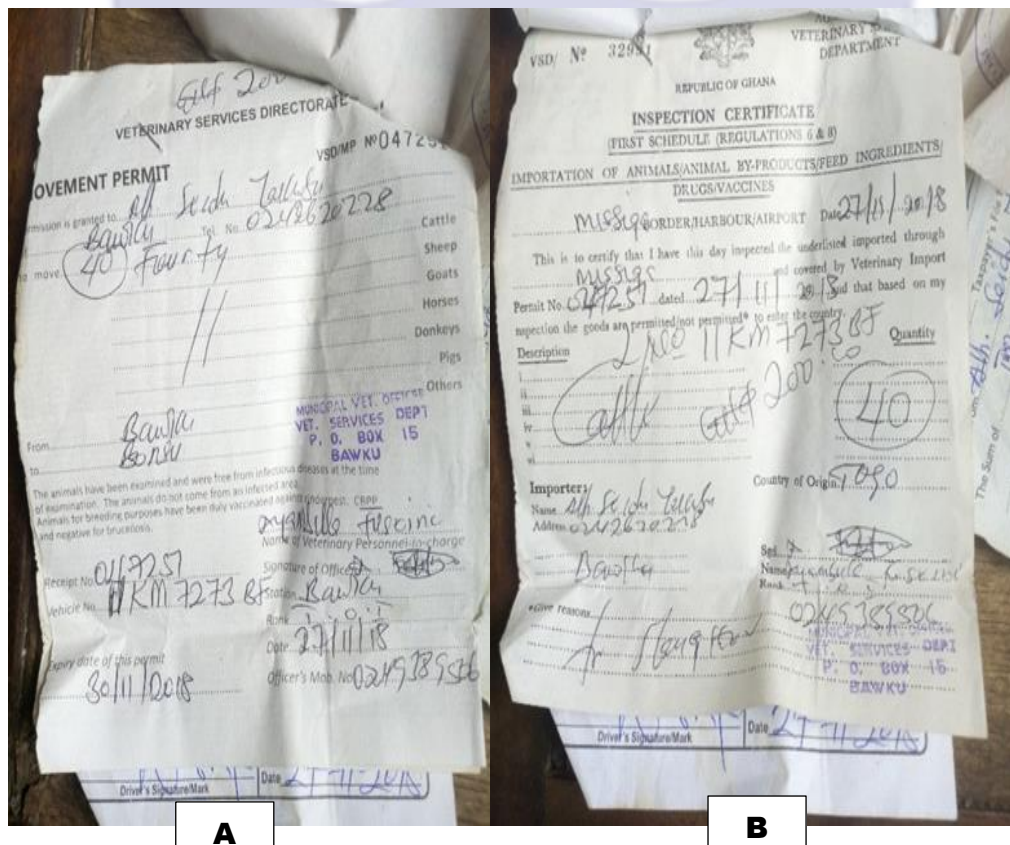 GH¢ 200
VETERINARY SERVICES DIRECTORATE
VSD/MP Nº 04725
OVEMENT PERMIT
mission is granted to Alh Seidu
Bawku Tel. No. 0242620228
Cattle
o move. 40 Fourty
Sheep
Goats
Horses
Donkeys
Pigs
Others
MUNICIPAL VET. OFFICER
VET. SERVICES DEPT
P. O. BOX 15
BAWKU
From Bawku
to
The animals have been examined and were free from infectious diseases at the time
of examination. The animals do not come from an infected area.
Animals for breeding purposes have been duly vaccinated against rinderpest, CBPP
and negative for brucellosis.
Name of Veterinary Personnel-in-charge
Receipt No. 047257
Signature of Officer
Vehicle No. 11KM 7273 BF
Station Bawku
Rank
Date 27/11/18
Expiry date of this permit
30/11/2018
Officer's Mob. No 0249389506
Driver's Signature/Mark
Date 27-11-2018
A
VSD/ Nº 329
VETERINARY
DEPARTMENT
REPUBLIC OF GHANA
INSPECTION CERTIFICATE
(FIRST SCHEDULE (REGULATIONS 6 & 8)
IMPORTATION OF ANIMALS/ANIMAL BY-PRODUCTS/FEED INGREDIENTS/
DRUGS/VACCINES
missiga BORDER/HARBOUR/AIRPORT Date 27/11/2018
This is to certify that I have this day inspected the underlisted imported through
missiga and covered by Veterinary Import
Permit No. 047257 dated 27/11/2018 and that based on my
inspection the goods are permitted/not permitted* to enter the country.
11KM 7273 BF
Description Quantity
i
ii
iii
iv
v
vi
Cattle GH¢ 200.00 40
Importer:
Country of Origin Togo
Name Alh Seidu
Address 0242620228
Bawku
Name
Rank
0249389506
*Give reasons
for Slaughter
MUNICIPAL VET. OFFICER
VET. SERVICES DEPT
P. O. BOX 15
BAWKU
Driver's Signature/Mark
Date 27-11-2018
The Sum of
Taxpayer's
B